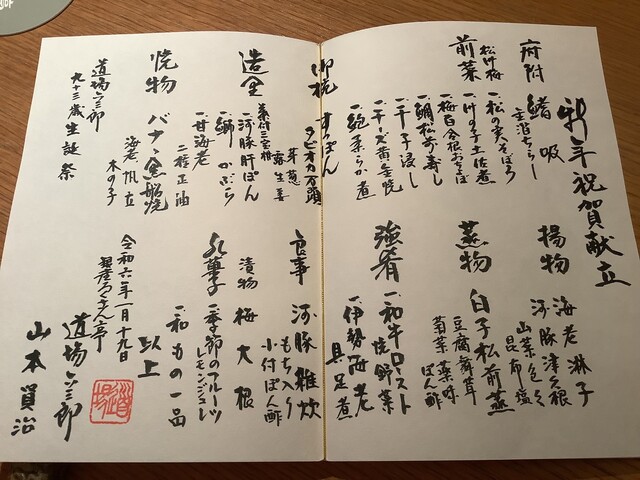 新年祝賀献立
府附
鰭吸
前菜
松竹梅
一、松の実そぼろ
一、竹の子土佐煮
一、梅百合根おちょぼ
一、鯛松前寿し
一、干子浸し
一、鮑柔らか煮
御椀
すっぽん
タピオカ万頭
芽葱
露生姜
造里
一、河豚肝ぽん
一、鰤かぶら
一、甘海老
二種正油
焼物
バナナ宝船焼
海老帆立
木の子
道場六三郎
九十三歳生誕祭
揚物
海老淋子
河豚津久根
山菜色々
昆布塩
蒸物
白子松前蒸
豆腐舞茸
菊菜薬味
ぽん酢
強肴
一、和牛ロースト
焼野菜
一、伊勢海老
具足煮
食事
河豚雑炊
もち入り
小付ぽん酢
漬物
梅大根
水菓子
一、季節のフルーツ
レモンジュレ
一、和もの一品
以上
令和六年一月十九日
銀座ろくさん亭
道場六三郎
山本賢治